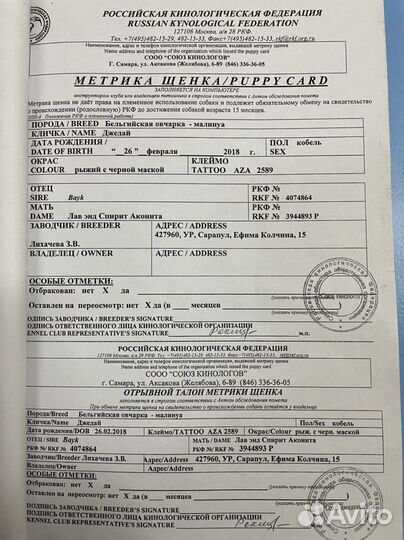 РОССИЙСКАЯ КИНОЛОГИЧЕСКАЯ ФЕДЕРАЦИЯ
RUSSIAN KYNOLOGICAL FEDERATION
127106 Москва, а/я 28 РКФ.
Тел. +7(495)482-15-29, 482-15-33, Факс+7(495)482-15-33, rkf@rkf.org.ru
Наименование, адрес и телефон кинологической организации, выдавшей метрику щенка
Name address and telephone of the organization which issued the puppy card
СООО "СОЮЗ КИНОЛОГОВ"
Г. Самара, ул. Аксакова (Желябова), 6-89 (846) 336-36-05
МЕТРИКА ЩЕНКА/PUPPY CARD
ЗАПОЛНЯЕТСЯ НА КОМПЬЮТЕРЕ
инструктором клуба или владельцем питомника в строгом соответствии с Актом обследования помета
Метрика не даёт права на племенное использование собаки и подлежит обязательному обмену на свидетельство
о происхождении (родословную) РКФ до достижения собакой возраста 15 месяцев.
Положения РКФ о племенной работе)
ПОРОДА / BREED Бельгийская овчарка - малинуа
КЛИЧКА/ NAME Джедай
ДАТА РОЖДЕНИЯ / ПОЛ кобель
DATE OF BIRTH " 26 " февраля 2018 г. SEX
ОКРАС КЛЕЙМО
COLOUR рыжий с черной маской TATTOO AZA 2589
ОТЕЦ РКФ №
SIRE Bayk RKF № 4074864
МАТЬ РКФ №
DAME Лав энд Спирит Аконита RKF № 3944893 Р
ЗАВОДЧИК / BREEDER АДРЕС / ADDRESS
Лихачева З.В. 427960, УР, Сарапул, Ефима Колчина, 15
ВЛАДЕЛЕЦ / OWNER АДРЕС / ADDRESS
ОСОБЫЕ ОТМЕТКИ:
Отбракован: нет X да
Оставлен на переосмотр: нет X да (в месяцев
ПОДПИСЬ ЗАВОДЧИКА / BREEDER'S SIGNATURE
ПОДПИСЬ ОТВЕТСТВЕННОГО ЛИЦА КИНОЛОГИЧЕСКОЙ ОРГАНИЗАЦИИ
KENNEL CLUB REPRESENTATIVE'S SIGNATURE м.п.
РОССИЙСКАЯ КИНОЛОГИЧЕСКАЯ ФЕДЕРАЦИЯ
127106 Москва, а/я 28 РКФ. Тел. +7(495)482-15-29, 482-15-33, Факс+7(495)482-15-33, rkf@rkf.org.ru
Наименование, адрес и телефон кинологической организации, выдавшей метрику щенка
Name and address and telephone of the organization which issued the puppy card
СООО "СОЮЗ КИНОЛОГОВ"
г. Самара, ул. Аксакова (Желябова), 6-89 (846) 336-36-05
ОТРЫВНОЙ ТАЛОН МЕТРИКИ ЩЕНКА
заполняется в строгом соответствии с Актом обследования помета
При обмене метрики щенка на свидетельство о происхождении собаки остаётся у владельца
Порода/Breed Бельгийская овчарка - малинуа
Кличка/Name Джедай Пол/Sex кобель
Дата рождения/DOB 26.02.2018 Клеймо/TATTOO AZA 2589 Окрас/Colour рыж. с черн. маской
ОТЕЦ / SIRE Bayk МАТЬ / DAME Лав энд Спирит Аконита
РКФ №/RKF № 4074864 РКФ №/RKF № 3944893 Р
Заводчик/Breeder Лихачева З.В. Адрес/Address 427960, УР, Сарапул, Ефима Колчина, 15
Владелец/Owner Адрес/Address
ОСОБЫЕ ОТМЕТКИ:
Отбракован: нет X да
Оставлен на переосмотр: нет X да (в месяцев)
ПОДПИСЬ ЗАВОДЧИКА / BREEDER'S SIGNATURE
ПОДПИСЬ ОТВЕТСТВЕННОГО ЛИЦА КИНОЛОГИЧЕСКОЙ ОРГАНИЗАЦИИ
KENNEL CLUB REPRESENTATIVE'S SIGNATURE
Avito